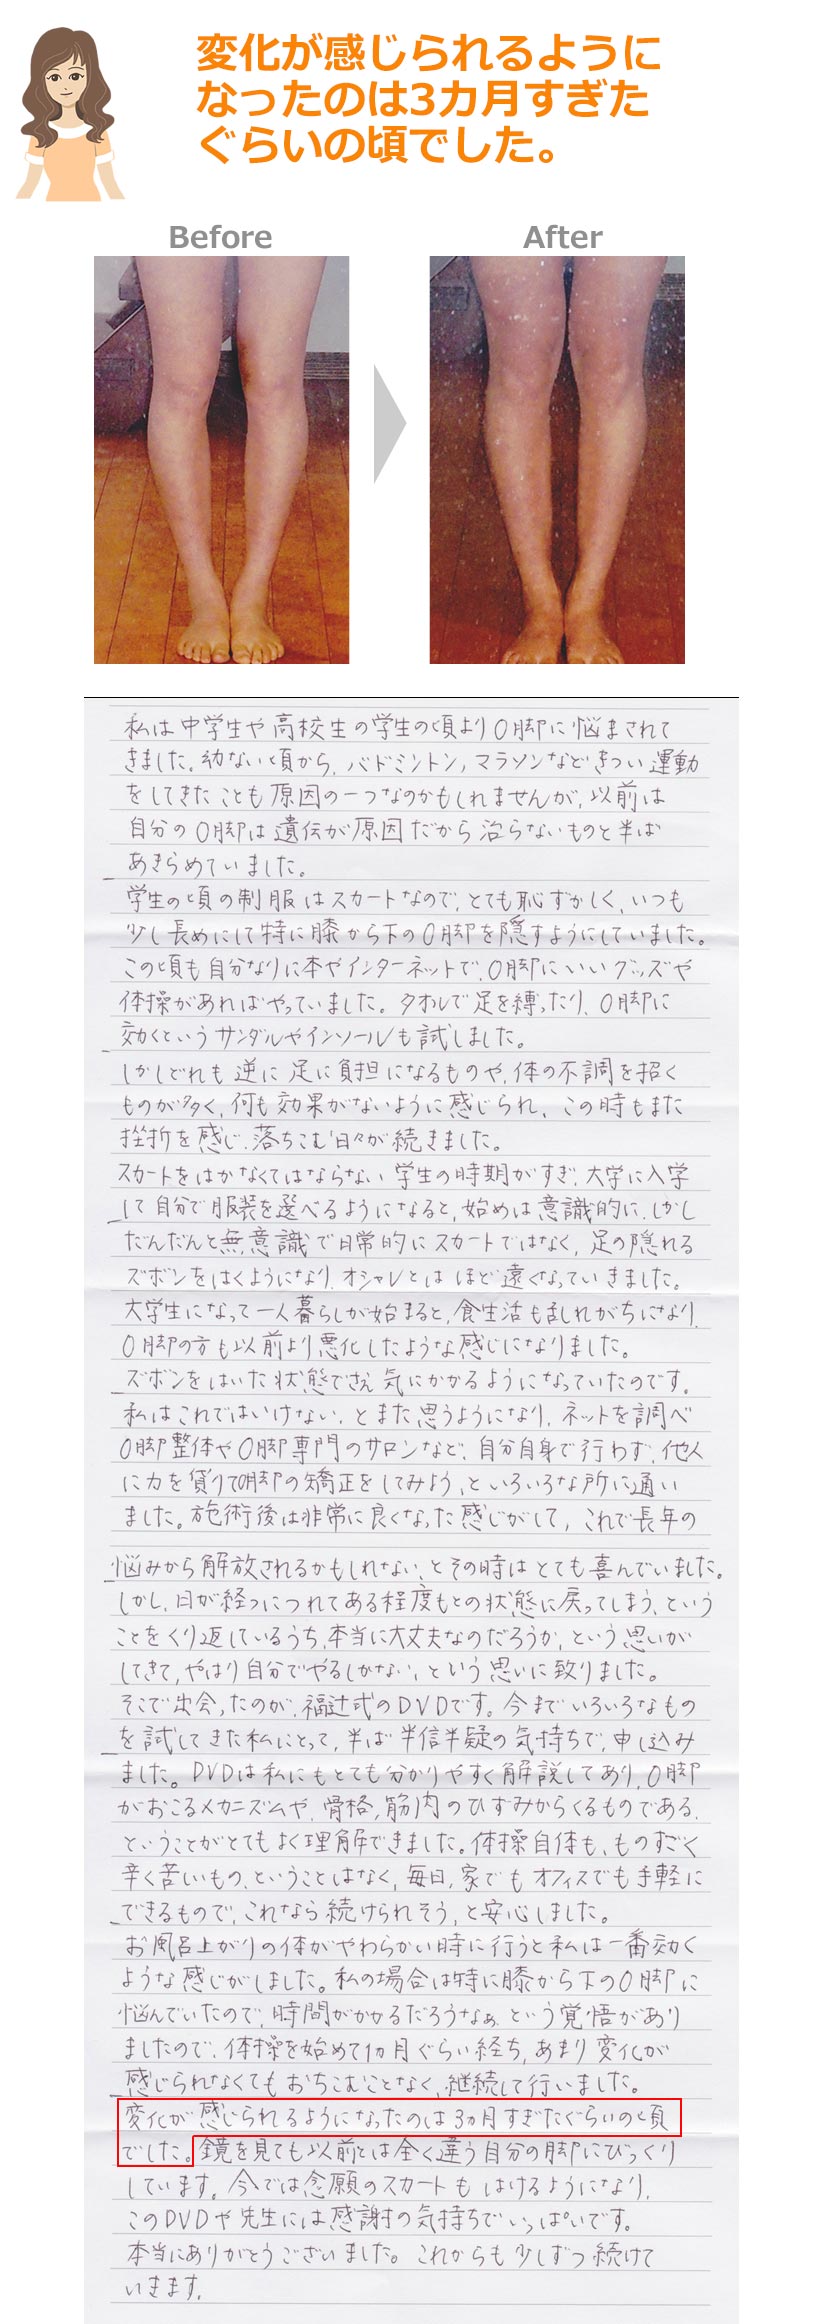 変化が感じられるように
なったのは3カ月すぎた
ぐらいの頃でした。
Before
After
私は中学生や高校生の学生の頃よりO脚に悩まされて
きました。幼ない頃から、バドミントン、マラソンなどきつい運動
をしてきたことも原因の一つなのかもしれませんが、以前は
自分のO脚は遺伝が原因だから治らないものと半ば
あきらめていました。
学生の頃の制服はスカートなので、とても恥ずかしく、いつも
少し長めにして特に膝から下のO脚を隠すようにしていました。
この頃も自分なりに本やインターネットで、O脚にいいグッズや
体操があればやっていました。タオルで足を縛ったり、O脚に
効くというサンダルやインソールも試しました。
しかしどれも逆に足に負担になるものや、体の不調を招く
ものが多く、何も効果がないように感じられ、この時もまた
挫折を感じ、落ちこむ日々が続きました。
スカートをはかなくてはならない学生の時期がすぎ、大学に入学
して自分で服装を選べるようになると、始めは意識的に、しかし
だんだんと無意識で日常的にスカートではなく、足の隠れる
ズボンをはくようになり、オシャレとはほど遠くなっていきました。
大学生になって一人暮らしが始まると、食生活も乱れがちになり、
O脚の方も以前より悪化したような感じになりました。
ズボンをはいた状態でさえ気にかかるようになっていたのです。
私はこれではいけない、とまた思うようになり、ネットを調べ
O脚整体やO脚専門のサロンなど、自分自身で行わず、他人
に力を貸りてO脚の矯正をしてみよう、といろいろな所に通い
ました。施術後は非常に良くなった感じがして、これで長年の
悩みから解放されるかもしれない、とその時はとても喜んでいました。
しかし、日が経つにつれてある程度もとの状態に戻ってしまう、という
ことをくり返しているうち、本当に大丈夫なのだろうか、という思いが
してきて、やはり自分でやるしかない、という思いに致りました。
そこで出会ったのが、福辻式のDVDです。今までいろいろなもの
を試してきた私にとって、半ば半信半疑の気持ちで、申し込み
ました。DVDは私にもとても分かりやすく解説してあり、O脚
がおこるメカニズムや、骨格、筋肉のひずみからくるものである、
ということがとてもよく理解できました。体操自体も、ものすごく
辛く苦しいもの、ということはなく、毎日、家でもオフィスでも手軽に
できるもので、これなら続けられそう、と安心しました。
お風呂上がりの体がやわらかい時に行うと私は一番効く
ような感じがしました。私の場合は特に膝から下のO脚に
悩んでいたので、時間がかかるだろうなぁ、という覚悟があり
ましたので、体操を始めて1カ月ぐらい経ち、あまり変化が
感じられなくてもおちこむことなく、継続して行いました。
変化が感じられるようになったのは3カ月すぎたぐらいの頃
でした。鏡を見ても以前とは全く違う自分の脚にびっくり
しています。今では念願のスカートもはけるようになり、
このDVDや先生には感謝の気持ちでいっぱいです。
本当にありがとうございました。これからも少しずつ続けて
いきます。